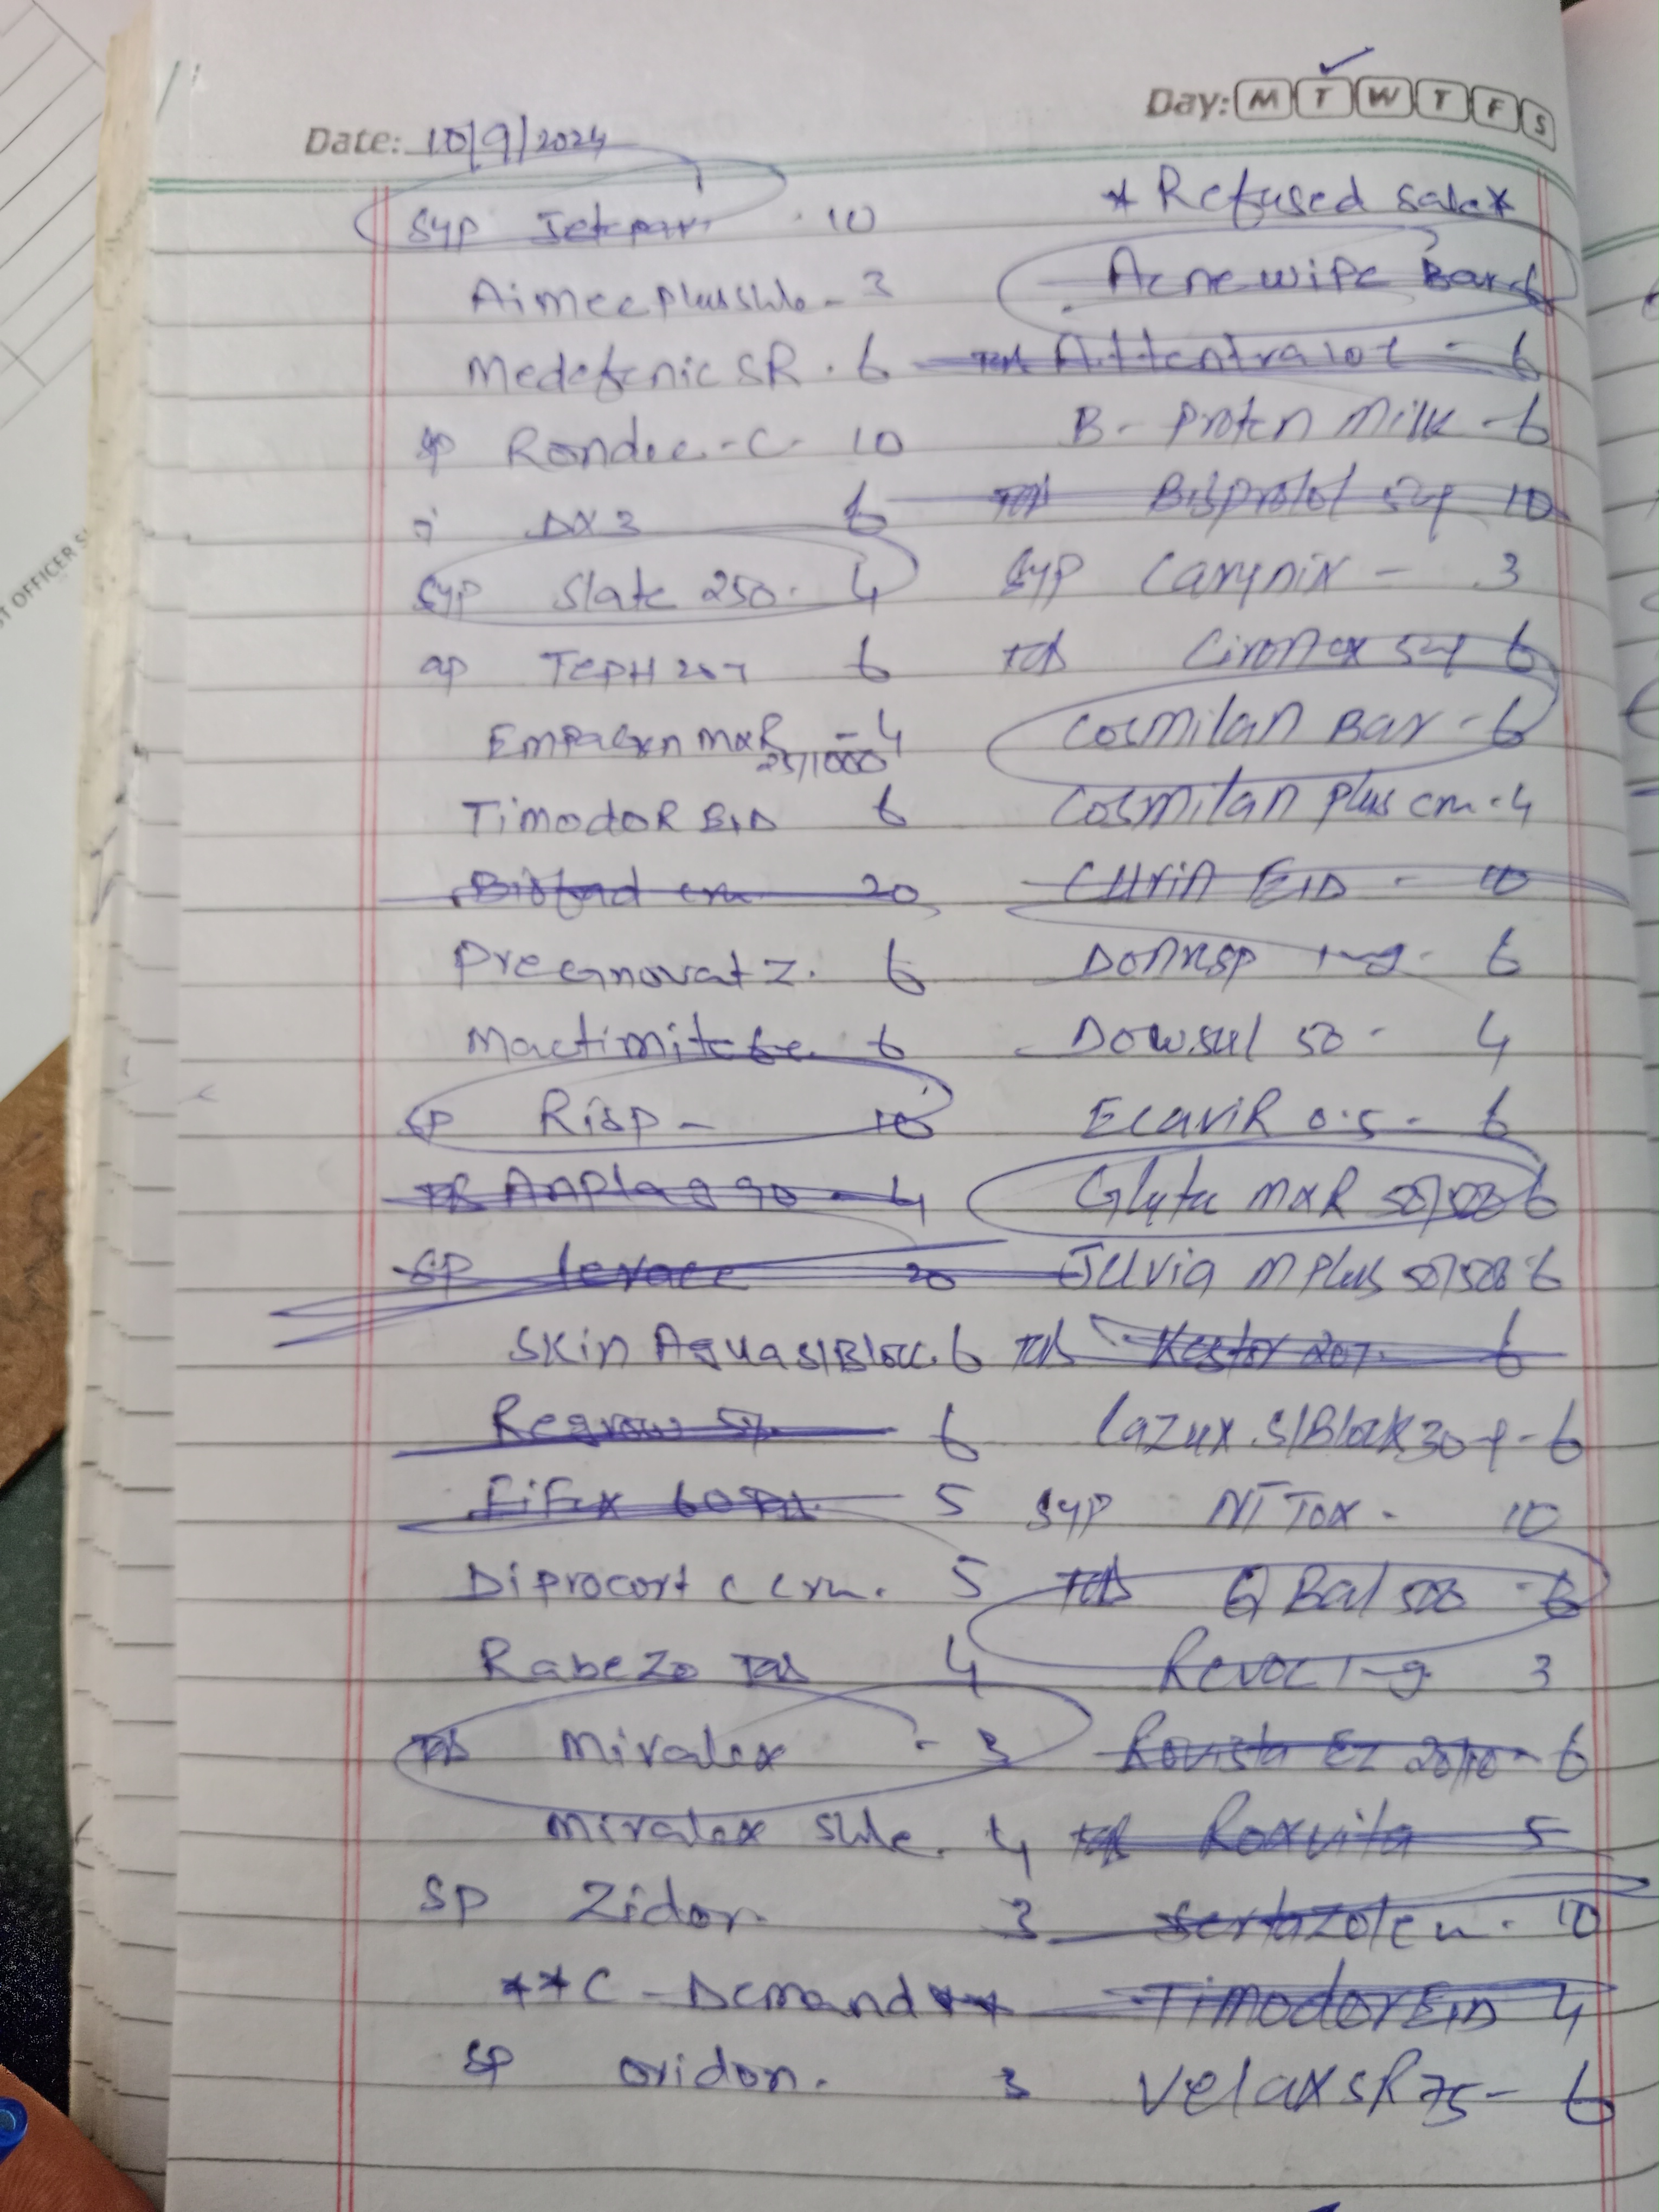 Day: M T W T F S
Date: 10/9/2024
Syp Jetepar 10
Aimee plus shlo - 3
Medefenic SR . 6
sp Rondec - C - 10
DX3 6
Syp Slate 250 . 4
TepH 6
EmpaGxn MXR - 4
25/1000
Timodor E/D 6
20
Preegnovat Z . 6
Mactimite 6
sp Risp - 10
Tab Anplag 90 - 4
SP levace 20
Skin Aqua S/Block . 6
Regrow 6
Fifex 60 5
Diprocort C Crm . 5
Rabezo Tab 4
Tab Miralex - 3
Miralex 4
SP Zidon 3
** C - Demand **
SP oridon . 3
* Refused sale *
Acne wipe Bar 6
Tab Attentra 10t - 6
B - Proten Milk - 6
Tab Bisprolol 10
Syp Carynix - 3
Tab Cironex 6
Cosmilan Bar - 6
Cosmilan plus crm - 4
Curin E/D - 10
6
Dowsul 50 - 4
Ecavir 0.5 - 6
Glyta MXR 50/500 6
Juvia M Plus 50/500 - 6
Tab Kestor 6
Lazux S/Block 30 - 6
Syp NT Tox - 10
Tab Q Bal 500 - 6
Revoc 3
Rovista EZ 20/10 - 6
Tab Roxvita 5
Sertazole 10
Timodor E/D 4
Velax SR 75 - 6
OFFICER